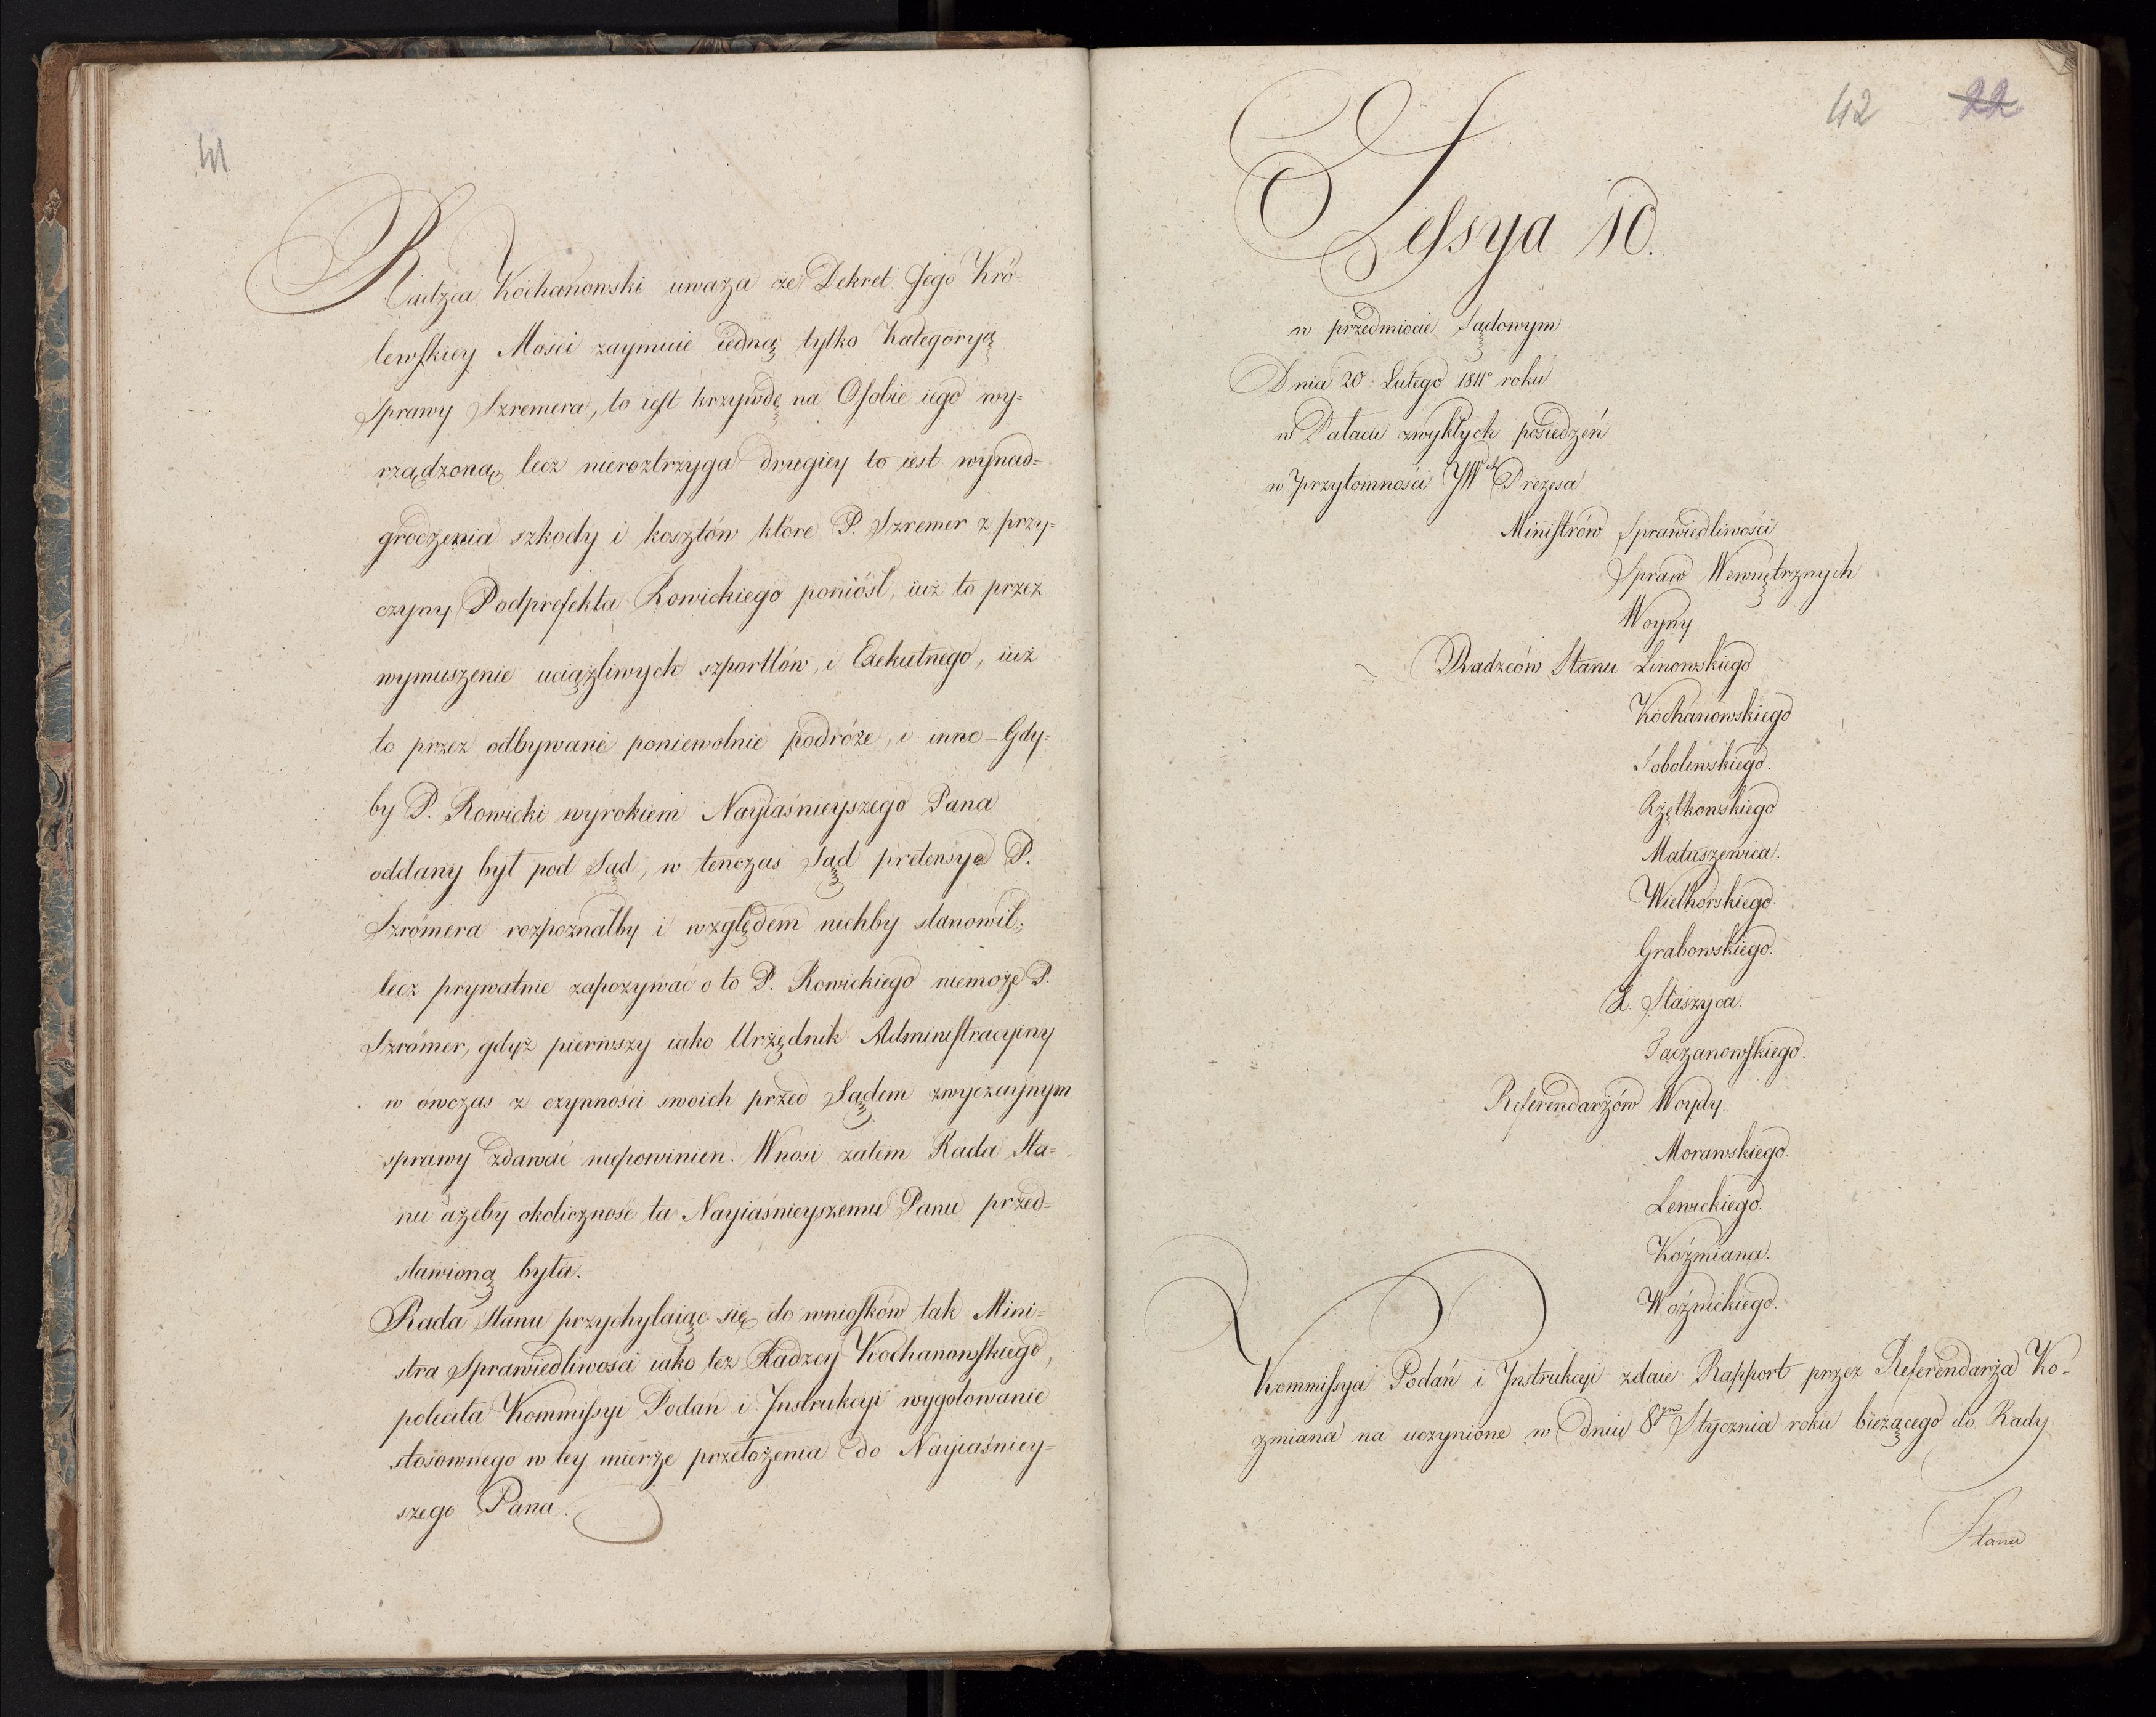 41
Radzca Kochanowski uważa że Dekret Jego Kró-
lewskiey Mosci zaymuie iedną tylko Kategoryą
Sprawy Szremera, to iest krzywdę na Osobie iego wy-
rządzoną, lecz nieroztrzyga drugiey to iest wynad-
grodzenia szkody i kosztów które P. Szremer z przy-
czyny Podprefekta Rowickiego poniósł, iuż to przez
wymuszenie uciążliwych szportlów, i Exekutnego, iuż
to przez odbywane poniewolnie podróże, i inne – Gdy-
by P. Rowicki wyrokiem Nayiaśnieyszego Pana
oddany był pod Sąd, w tenczas Sąd pretensye P.
Szrömera rozpoznałby i względem nichby stanowił;
lecz prywatnie zapozywać o to P. Rowickiego niemoże P.
Szrömer, gdyż pierwszy iako Urzędnik Administracyiny
w ówczas z czynności swoich przed Sądem zwyczaynym
sprawy zdawać niepowinien. Wnosi zatem Rada Sta-
nu ażeby okoliczność ta Nayiaśnieyszemu Panu przed-
stawioną była.
Rada Stanu przychylaiąc się do wniosków tak Mini-
stra Sprawiedliwości iako też Radzcy Kochanowskiego,
poleciła Kommissyi Podań i Instrukcyi wygotowanie
stosownego w tey mierze przełożenia do Nayiaśniey-
szego Pana.
42 22
Sessya 10.
w przedmiocie Sądowym
Dnia 20 Lutego 1811º roku
w Pałacu zwykłych posiedzeń
w Przytomności JWch Prezesa
Ministrów Sprawiedliwości
Spraw Wewnętrznych
Woyny
Radzców Stanu Linowskiego
Kochanowskiego
Sobolewskiego.
Rzętkowskiego
Matuszewica.
Wielhorskiego.
Grabowskiego.
X. Staszyca.
Taczanowskiego.
Referendarzów Woydy.
Morawskiego.
Lewickiego.
Koźmiana.
Woźnickiego.
Kommissya Podań i Instrukcyi zdaie Rapport przez Referendarza Ko-
zmiana na uczynione w Dniu 8ym Stycznia roku bieżącego do Rady
Stanu